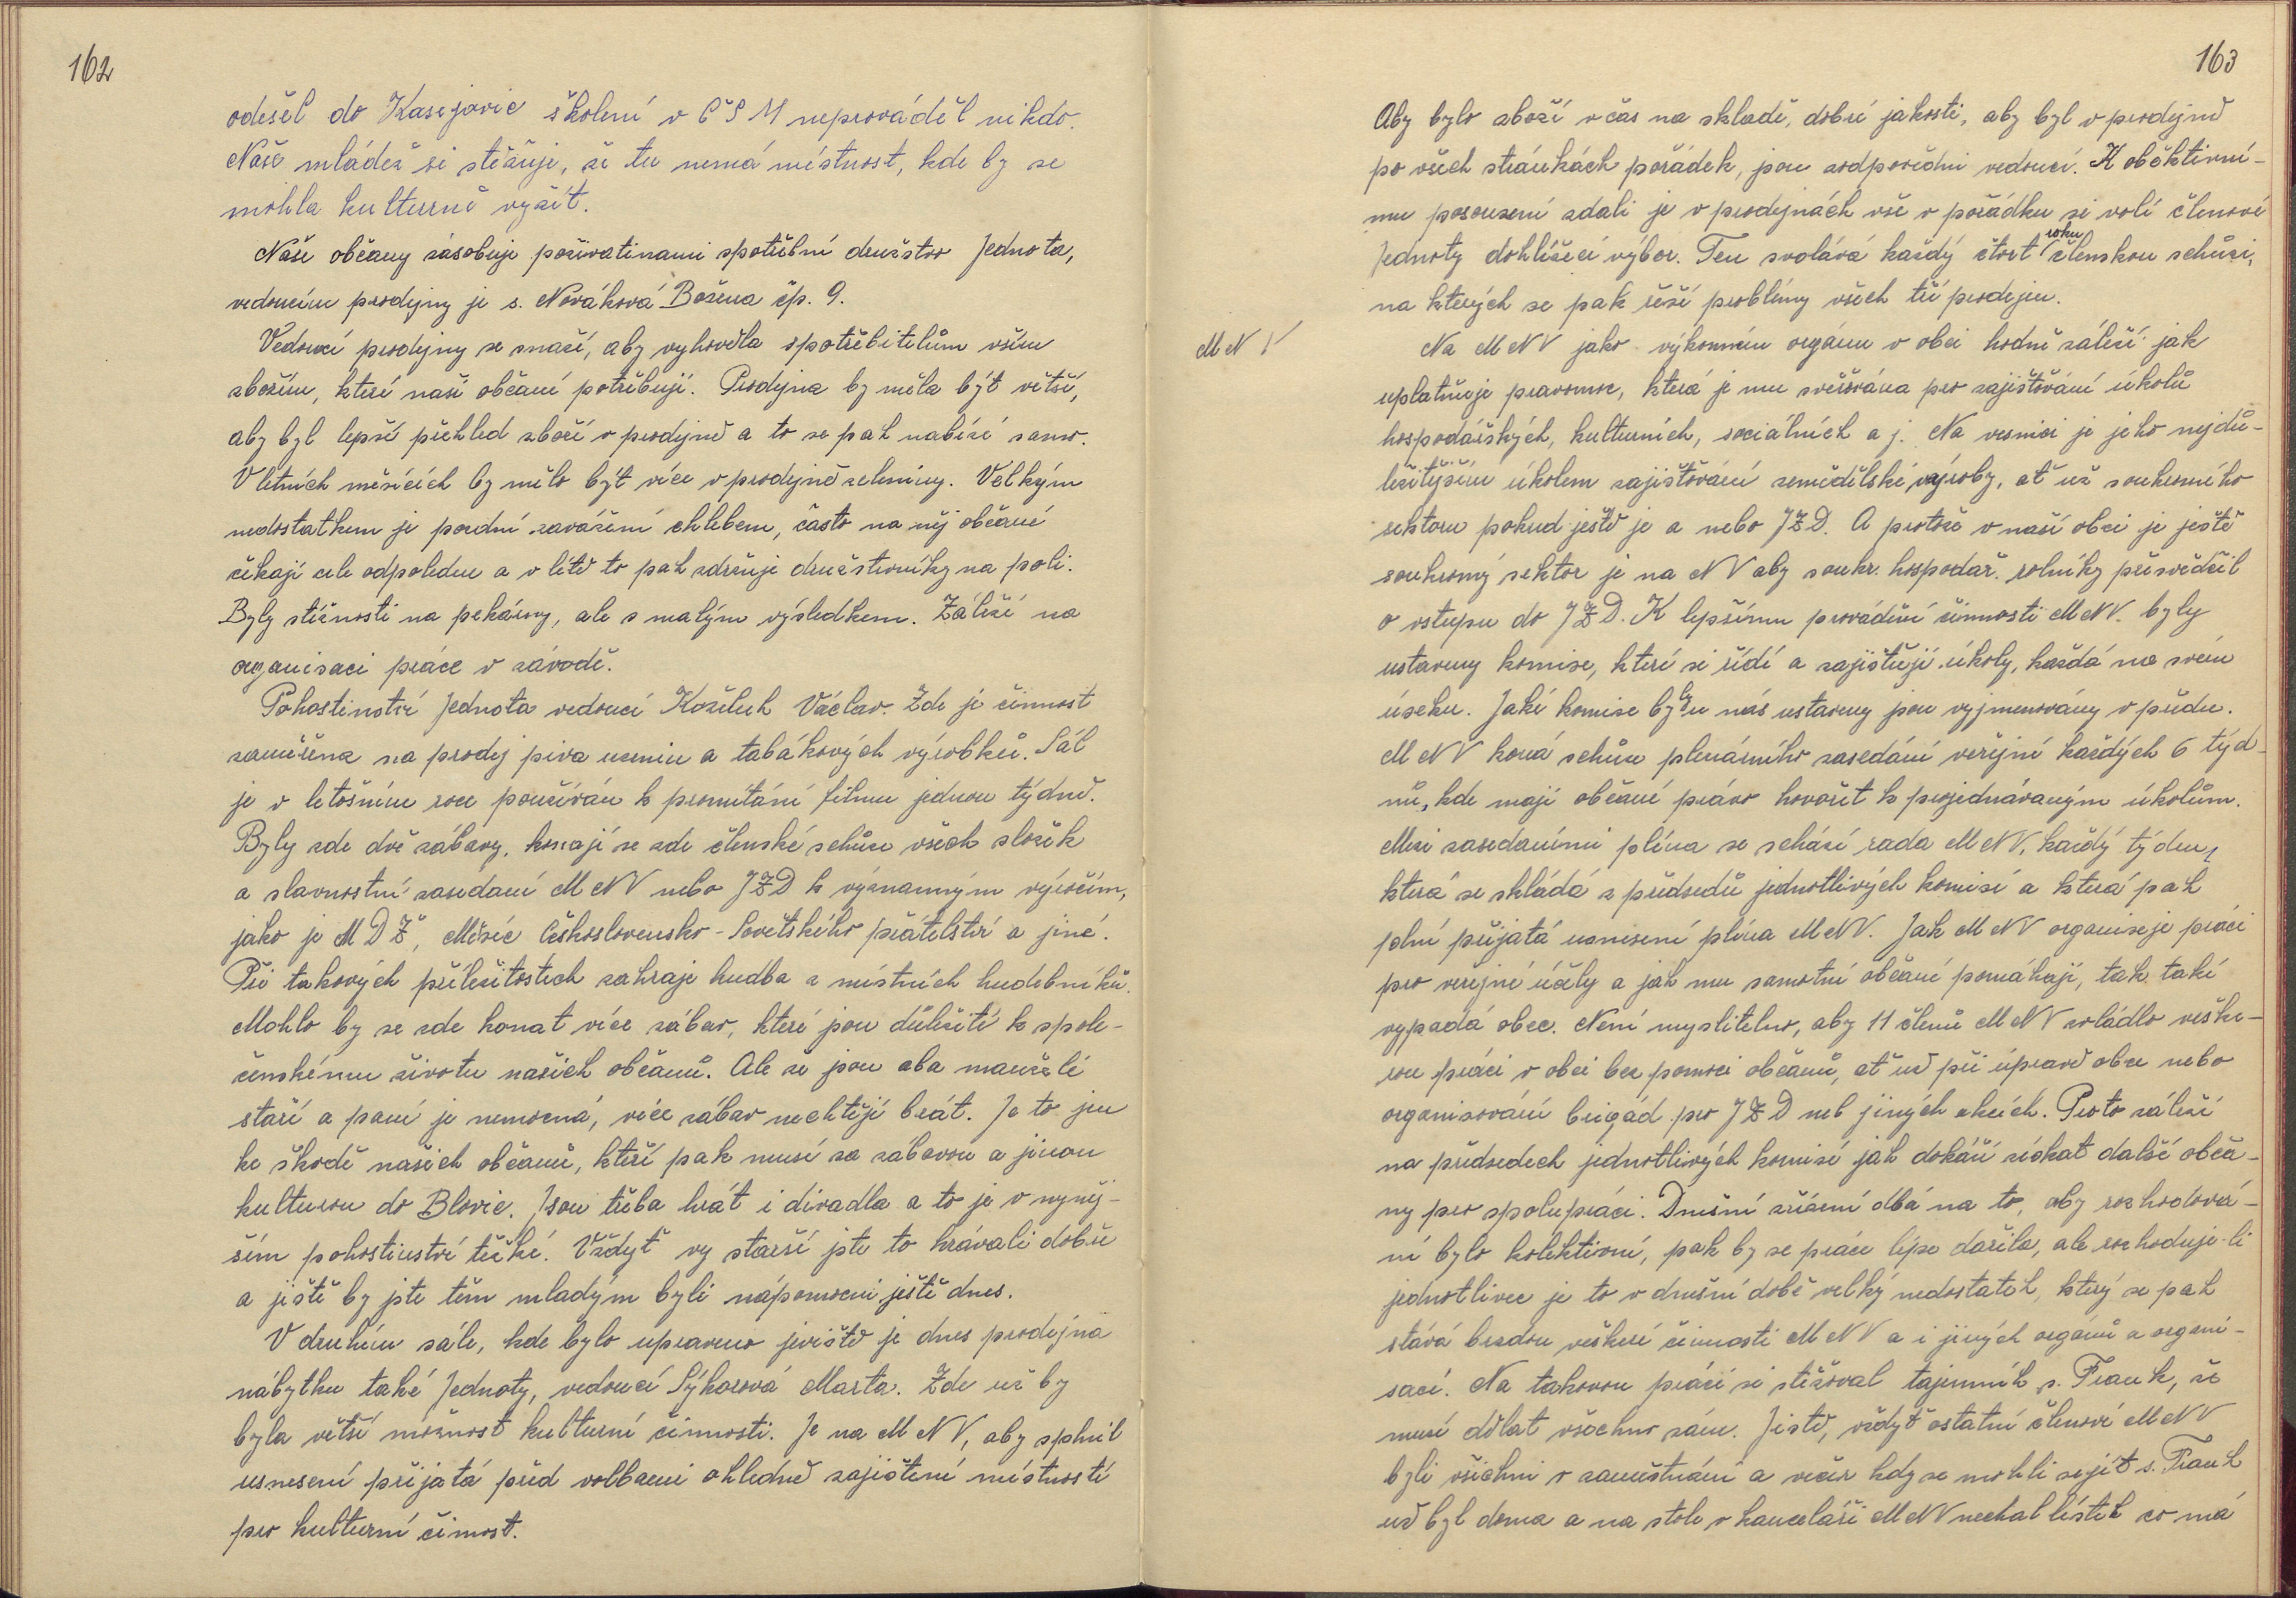 162
odešel do Kasejovic školení v ČSM neprováděl nikdo.
Naše mládež si stěžuje, že tu nemá místnost, kde by se
mohla kulturně vyžít.
Naše občany zásobuje poživatinami spotřební družstvo Jednota,
vedoucím prodejny je s. Nováková Božena čp. 9.
Vedoucí prodejny se snaží, aby vyhověla spotřebitelům vším
zbožím, které naši občané potřebují. Prodejna by měla být větší,
aby byl lepší přehled zboží v prodejně a to se pak nabízí samo.
V letních měsících by mělo být více v prodejně zeleniny. Velkým
nedostatkem je pozdní zavážení chlebem, často na něj občané
čekají cele odpoledne a v létě to pak zdržuje družstevníky na poli.
Byly stížnosti na pekárny, ale s malým výsledkem. Záleží na
organisaci práce v závodě.
Pohostinství Jednota vedoucí Koželuh Václav. Zde je činnost
zaměřena na prodej piva uzenin a tabákových výrobků. Sál
je v letošním roce používán k promítání filmu jednou týdně.
Byly zde dvě zábavy, konají se zde členské schůze všech složek
a slavnostní zasedaní MNV nebo JZD k významným výročím,
jako je MDŽ, Měsíc Československo-Sovětského přátelství a jiné.
Při takových příležitostech zahraje hudba z místních hudebníků.
Mohlo by se zde konat více zábav, které jsou důležité k spole-
čenskému životu našich občanů. Ale že jsou oba manželé
staří a paní je nemocná, více zábav nechtějí brát. Je to jen
ke škodě našich občanů, kteří pak musí za zábavou a jinou
kulturou do Blovic. Jsou třeba hrát i divadla a to je v nyněj-
ším pohostinství těžké. Vždyť vy starší jste to hrávali dobře
a jistě by jste těm mladým byli nápomocni ještě dnes.
V druhém sále, kde bylo upraveno jeviště je dnes prodejna
nábytku také Jednoty, vedoucí Sýkorová Marta. Zde už by
byla větší možnost kulturní činnosti. Je na MNV, aby splnil
usnesení přijatá před volbami ohledně zajištění místnosti
pro kulturní činost.
163
Aby bylo zboží včas na skladě, dobré jakosti, aby byl v prodejně
po všech stránkách pořádek, jsou zodpovědni vedoucí. K oběktivní-
mu posouzení zdali je v prodejnách vše v pořádku si volí členové
Jednoty dohlížecí výbor. Ten svolává každý čtvrt roku členskou schůzi,
na kterých se pak řeší problémy všech tří prodejen.
MNV
Na MNV jako výkonném orgánu v obci hodně záleží jak
uplatňuje pravomoc, která je mu svěřována pro zajišťování úkolů
hospodářských, kulturních, sociálních a j. Na vesnici je jeho nejdů-
ležitějším úkolem zajišťování zemědělské výroby, ať už soukromého
sektoru pokud ještě je a nebo JZD. A protože v naší obci je ještě
soukromý sektor je na NV aby soukr. hospodař. rolníky přesvědčil
o vstupu do JZD. K lepšímu provádění činnosti MNV. byly
ustaveny komise, které si řídí a zajišťují úkoly, každá na svém
úseku. Jaké komise byly u nás ustaveny jsou vyjmenovány v předu.
MNV koná schůze plenárního zasedání veřejné každých 6 týd-
nů, kde mají občané právo hovořit k projednávaným úkolům.
Mezi zasedaními pléna se schází rada MNV, každý týden,
která se skládá z předsedů jednotlivých komisí a která pak
plní přijatá usnisení pléna MNV. Jak MNV organisuje práci
pro veřejné účely a jak mu samotní občané pomáhají, tak také
vypadá obec. Není myslitelno, aby 11 členů MNV zvládlo veške-
rou práci v obci bez pomoci občanů, ať už při úpravě obce nebo
organisování brigád pro JZD neb jiných akcích. Proto záleží
na předsedech jednotlivých komisí jak dokáží získat další obča-
ny pro spolupráci. Dnešní zřízení dbá na to, aby rozhodová-
ní bylo kolektivní, pak by se práce lépe dařila, ale rozhoduje-li
jednotlivec je to v dnešní době velký nedostatek, který se pak
stává brzdou veškeré činnosti MNV a i jiných orgánů a organi-
sací. Na takovou práci si stěžoval tajemník s. Frank, že
musí dělat všechno sám. Jistě, vždyť ostatní členové MNV
byli všichni v zaměstnání a večer kdy se mohli sejít s. Frank
už byl doma a na stole v kanceláři MNV nechal lístek co má